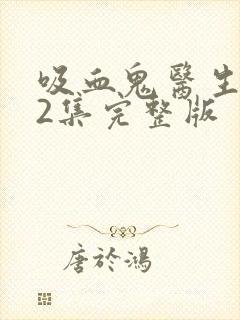 吸血鬼醫生
2集完整版
唐於鴻